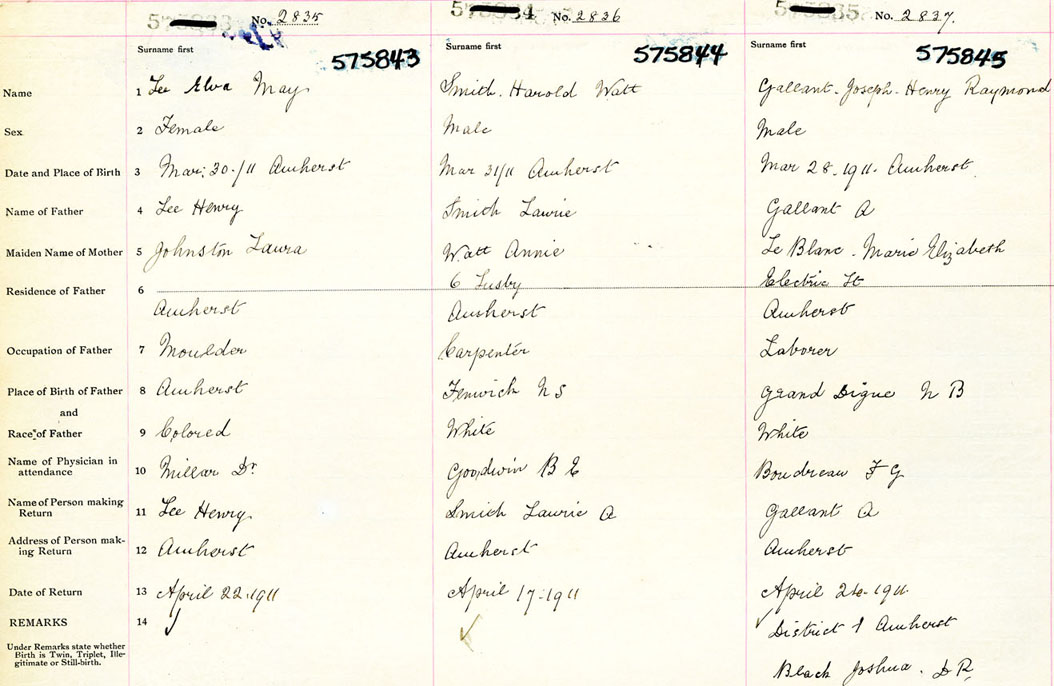 No. 2835 No. 2836 No. 2837.
Surname first Surname first Surname first
575843 575844 575845
Name 1 Lee Elva May Smith. Harold Watt Gallant. Joseph. Henry Raymond
Sex 2 Female Male Male
Date and Place of Birth 3 Mar: 30-/11 Amherst Mar 31/11 Amherst Mar 28. 1911. Amherst
Name of Father 4 Lee Henry Smith Lawrie Gallant A
Maiden Name of Mother 5 Johnston Laura Watt Annie Le Blanc. Marie Elizabeth
Residence of Father 6 6 Lusby Electric St
Amherst Amherst Amherst
Occupation of Father 7 Moulder Carpenter Laborer
Place of Birth of Father 8 Amherst Fenwick N S Grand Digue N B
and
Race of Father 9 Colored White White
Name of Physician in
attendance 10 Millar Dr Goodwin B E Boudreau F G
Name of Person making
Return 11 Lee Henry Smith Lawrie A Gallant A
Address of Person mak-
ing Return 12 Amherst Amherst Amherst
Date of Return 13 April 22.1911 April 17-1911 April 1911
REMARKS 14 District 1 Amherst
Under Remarks state whether
Birth is Twin, Triplet, Ille-
gitimate or Still-birth.
Black Joshua. D R,